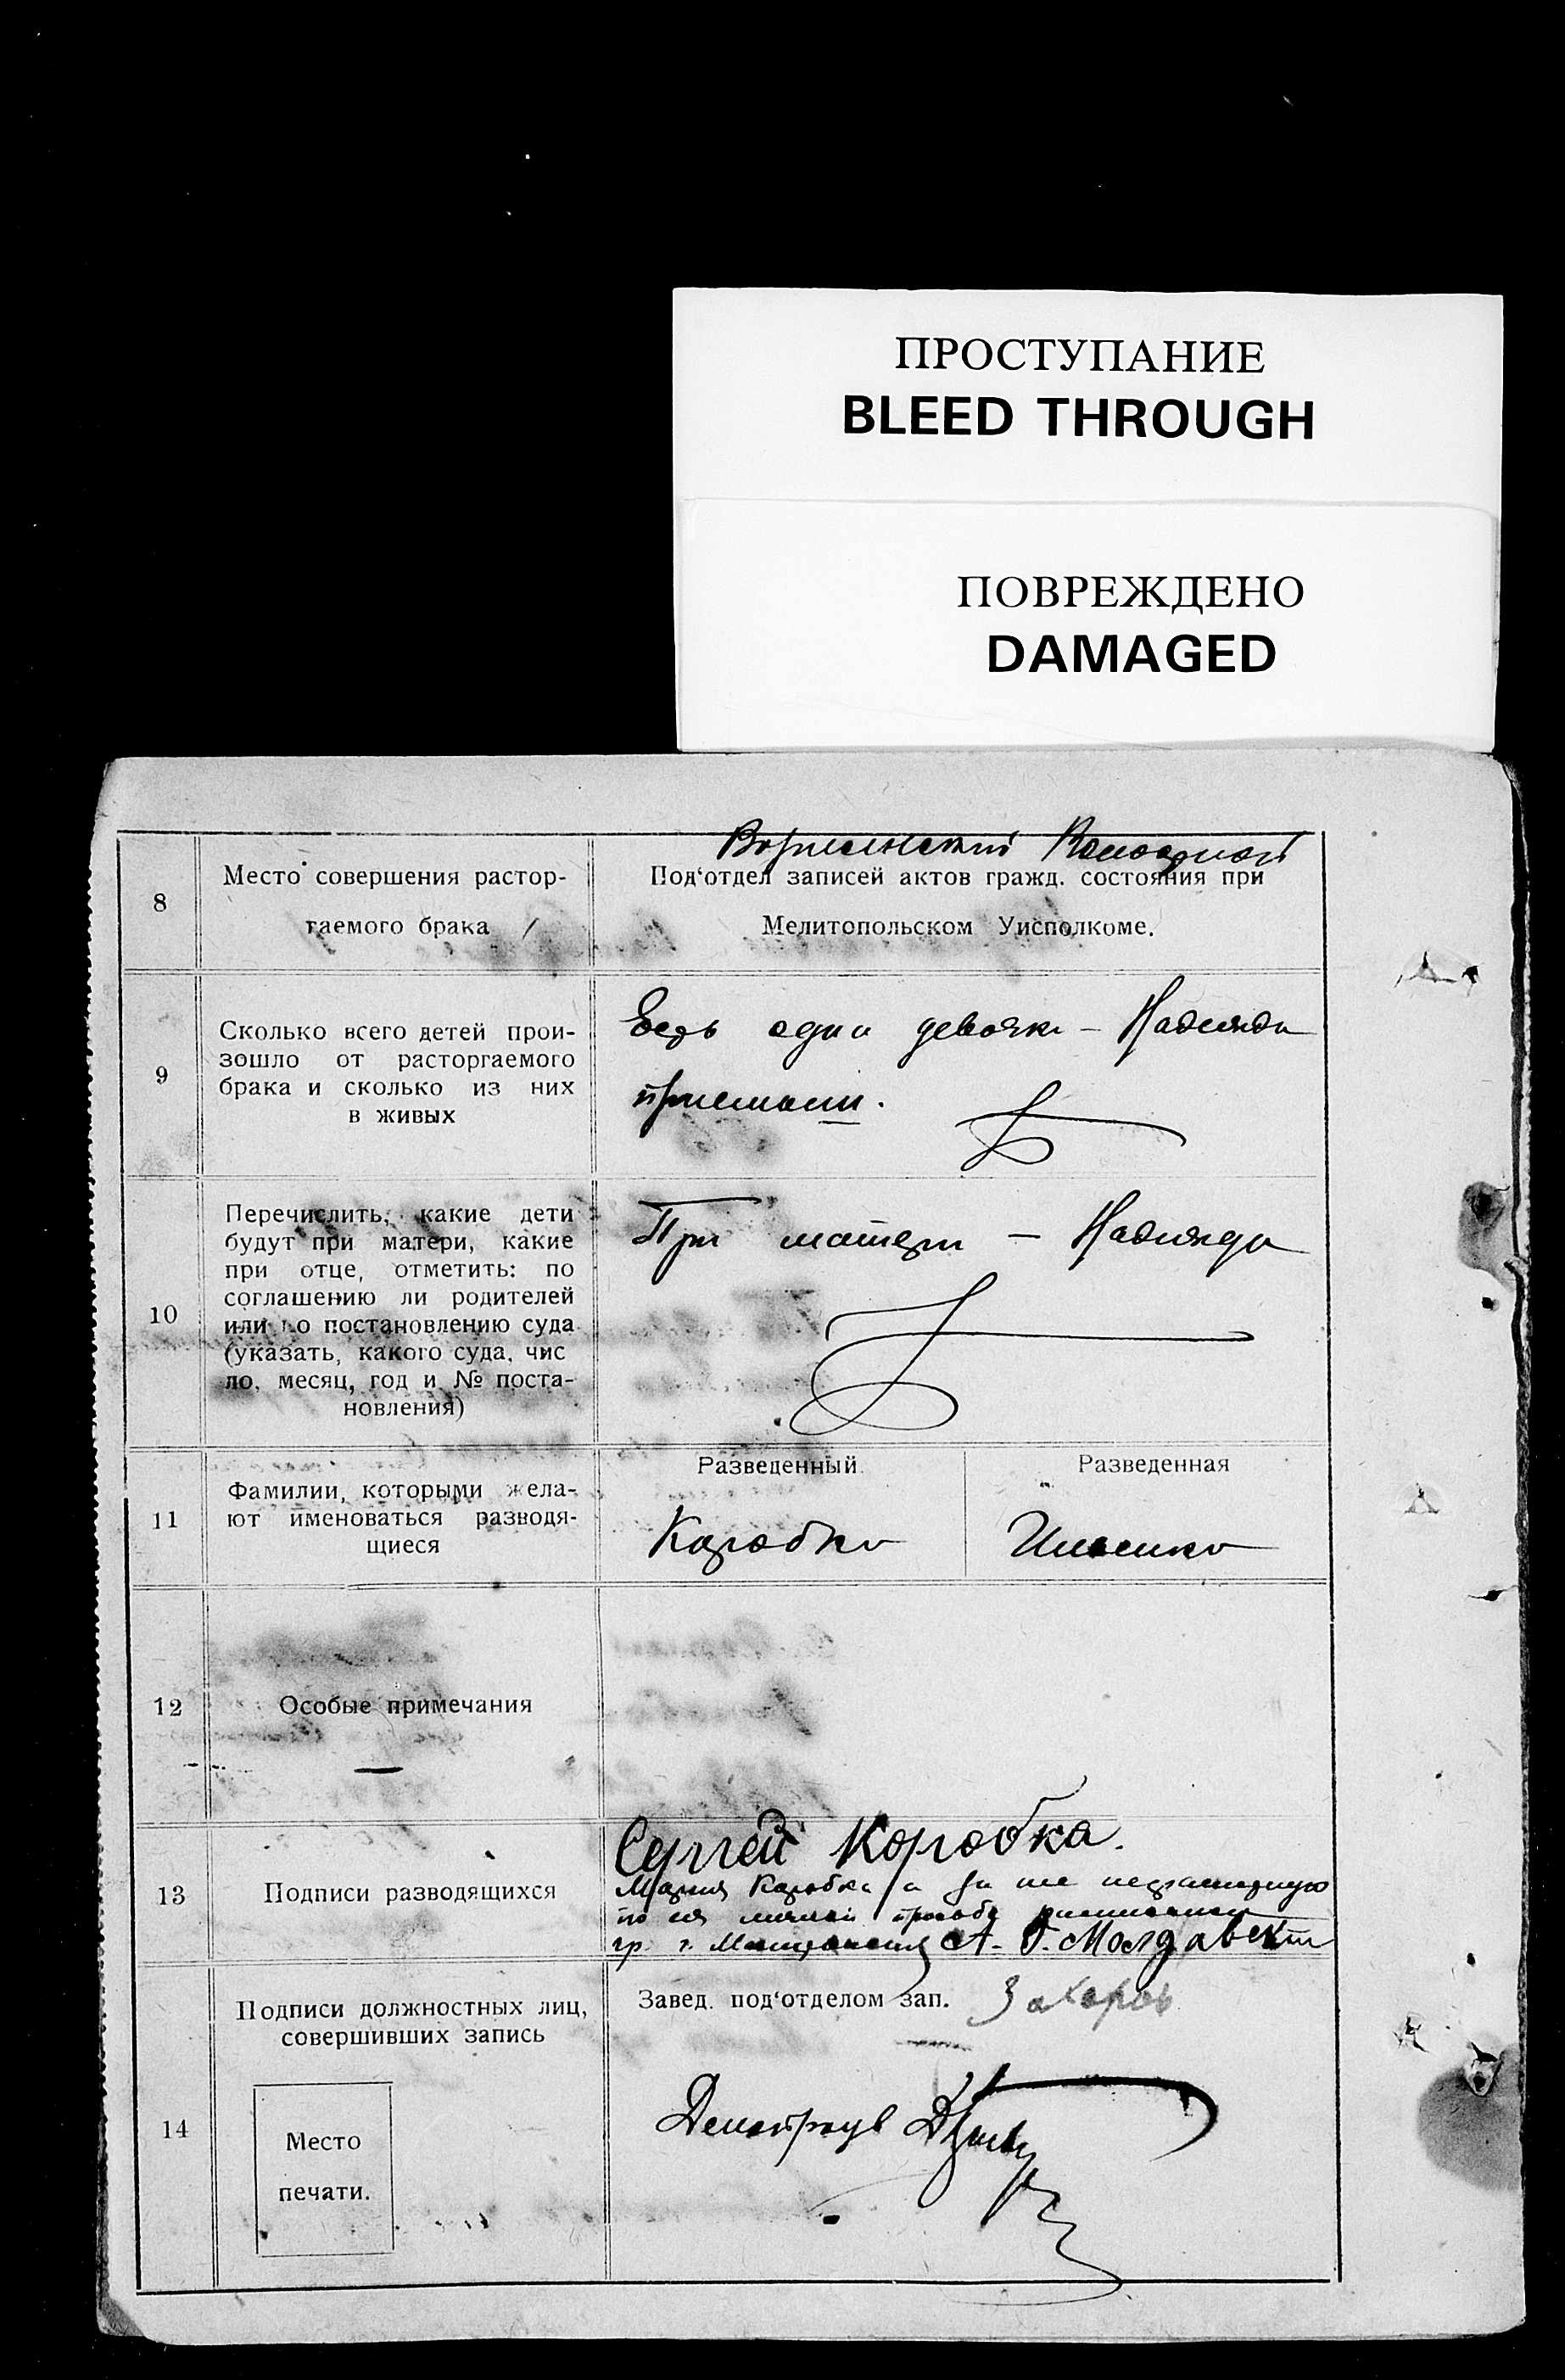 ПРОСТУПАНИЕ
BLEED THROUGH
ПОВРЕЖДЕНО
DAMAGED
8
Место совершения растор-
гаемого брака
Под‘отдел записей актов гражд. состояния при
Мелитопольском Уисполкоме.
9
Сколько всего детей прои-
зошло от расторгаемого
брака и сколько из них
в живых
одна девочка – Надежда
10
Перечислить, какие дети
будут при матери, какие
при отце, отметить: по
соглашению ли родителей
или по постановлению суда
(указать, какого суда, чис
ло, месяц, год и № поста-
новления)
При матери – Надежда
11
Фамилии, которыми жела-
ют именоваться разводя-
щиеся
Разведенный
Коробка
Разведенная
12
Особые примечания
13
Подписи разводящихся
Сергей Коробка.
Мария Коробка а за нее неграмотную
по ея личной просьбе
гр. г. А. Г. Молдавск
14
Подписи должностных лиц,
совершивших запись
Место
печати.
Завед. под‘отделом зап. Захаров